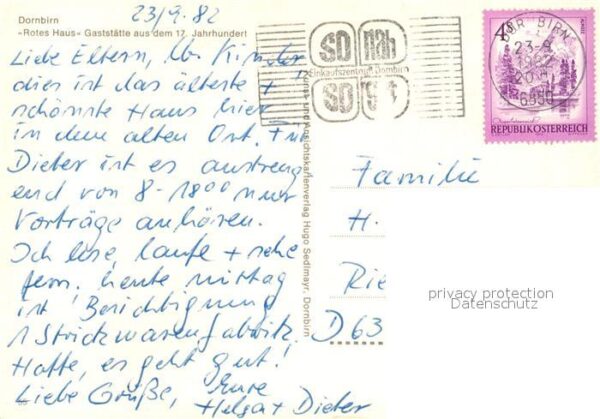 Dornbirn
«Rotes Haus» Gaststätte aus dem 17. Jahrhundert
23/9. 82
Liebe Eltern, lb. Kinder
dies ist das älteste +
schönste Haus hier
in dem alten Ort. Für
Dieter ist es anstreng
end von 8-1800 nur
Vorträge anhören.
Ich lese, laufe + sehe
fern. heute mittag
ist Besichtigung
1 Strickwarenfabrik.
Hoffe, es geht gut!
Liebe Grüße, Eure
Helga + Dieter
und Ansichtskartenverlag Hugo Sedlmayr, Dornbirn
so nah
Einkaufszentrum Dornbirn
so gut
DORNBIRN
23-9.
1982
6850
REPUBLIK ÖSTERREICH
Familie
H.
Rie
D 63
privacy protection
Datenschutz